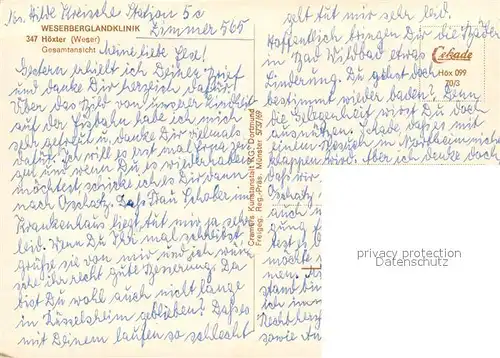 Abs. Hilde Kreische Station 5c
Zimmer 565
WESERBERGLANDKLINIK
347 Höxter (Weser)
Gesamtansicht
Meine liebe Ilse!
Gestern erhielt ich Deinen Brief
und danke Dir herzlich dafür.
Über das Bild von unserer Kindheit
auf der Eisbahn habe ich mich
sehr gefreut u. danke Dir vielmals
dafür. Ich will es erst mal Erna zei-
gen und wenn Du es wiederhaben
möchtest schicke ich es Dir dann
nach Oschatz. Daß Frau Schober im
Krankenhaus liegt tut mir ja sehr
leid. Wenn Du ihr mal schreibst
grüße sie von mir und ich wün-
sche ihr recht gute Besserung. Da
bist Du wohl auch nicht lange
in Rüsselsheim geblieben? Daß es
mit Deinem laufen so schlecht
geht tut mir sehr leid.
Hoffentlich bringen Dir die Bäder
in Bad Wildbad etwas
Linderung. Du gehst doch
bestimmt wieder baden? Denn
die Gelegenheit wirst Du doch
ausnutzen. Schade, daß es mit
einem Besuch in Northeim nicht
klappen wird. Aber ich denke doch
daß wir
auch
Cekade
Höx 099
70/3
Cramers Kunstanstalt KG, Dortmund
Freigeg. Reg.-Präs. Münster 5737/69
privacy protection
Datenschutz